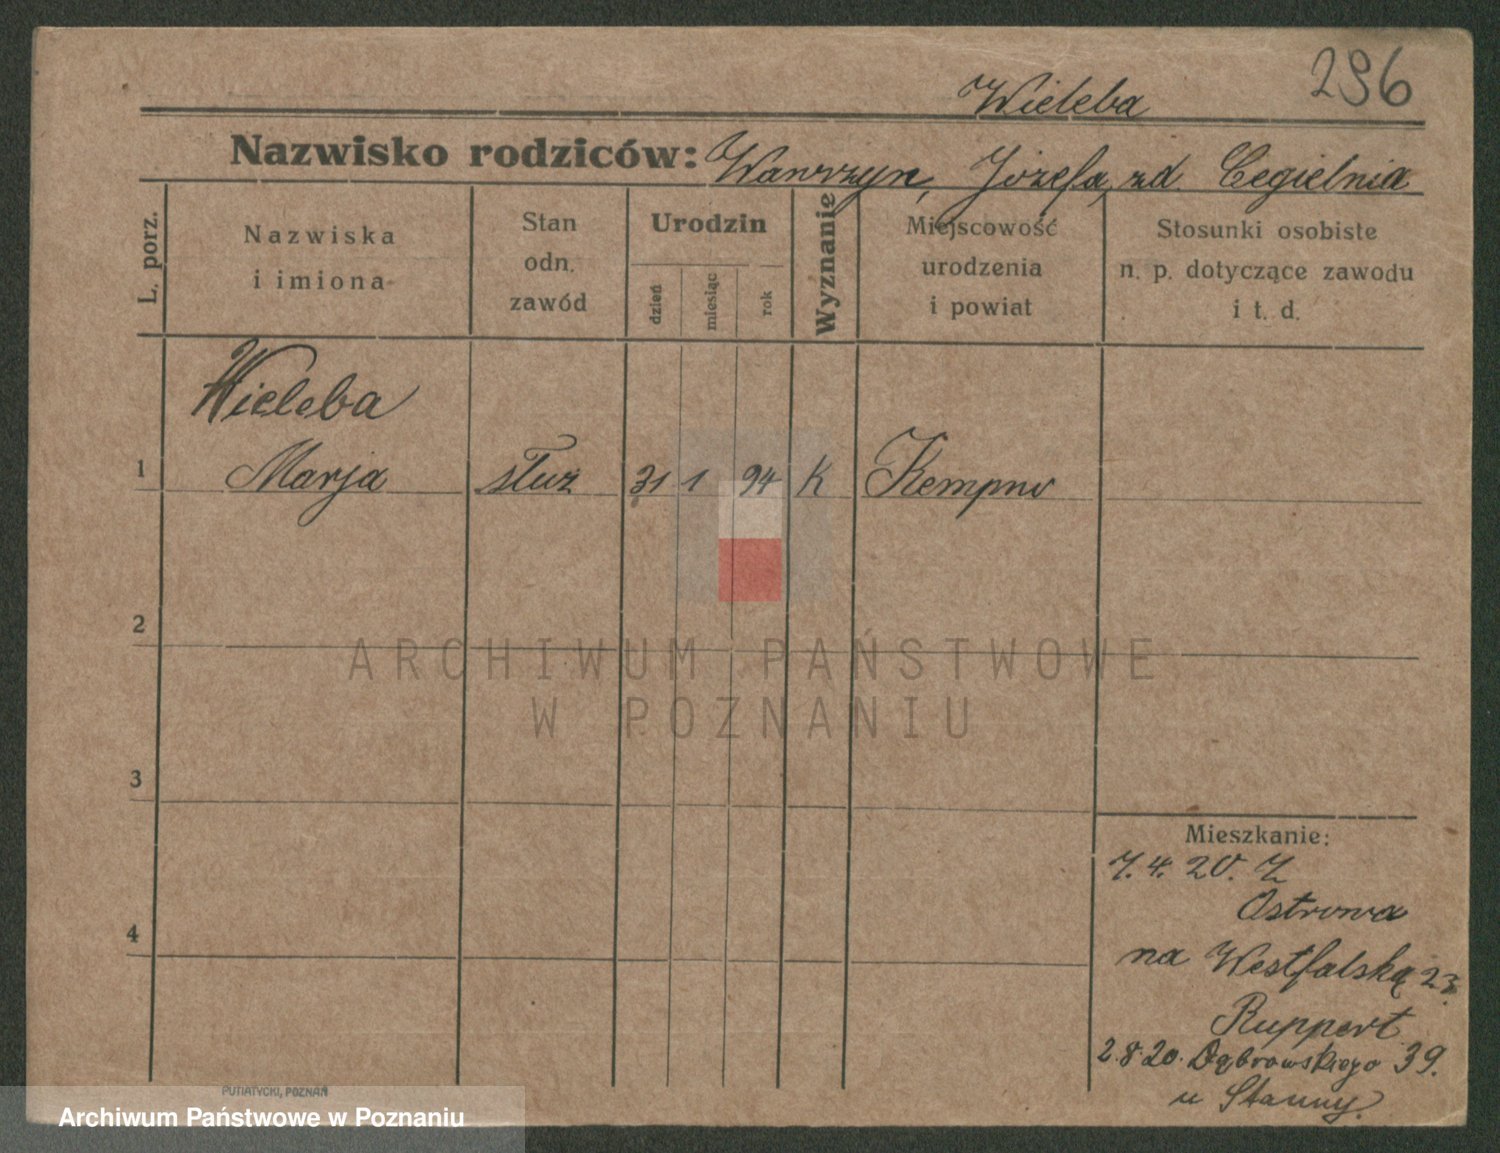 296
Wieleba
Nazwisko rodziców: Wawrzyn, Józefa, zd. Cegielnia
L. porz.
Nazwiska
i imiona
Stan
odn.
zawód
Urodzin
dzień
miesiąc
rok
Wyznanie
Miejscowość
urodzenia
i powiat
Stosunki osobiste
n. p. dotyczące zawodu
i t. d.
Wieleba
1 Marja służ 31 1 94 K Kempno
2
3
4
Mieszkanie:
7.4.20. Z
Ostrowa
na Westfalską 23.
Ruppert
2.8.20. Dąbrowskiego 39.
u Stanny.
PUTIATYCKI, POZNAŃ
ARCHIWUM PAŃSTWOWE
W POZNANIU
Archiwum Państwowe w Poznaniu